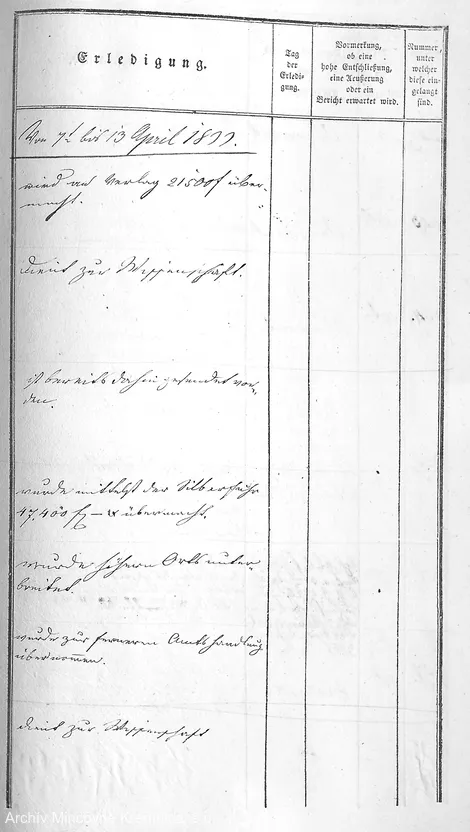 Erledigung.
Tag
der
Erledi-
gung.
Vormerkung,
ob eine
hohe Entschließung,
eine Aeußerung
oder ein
Bericht erwartet wird.
Nummer,
unter
welcher
diese ein-
gelangt
sind.
Von 7t bis 13 April 1833.
wird an Verlag 21500f über-
macht.
dient zur Wissenschaft.
ist bereits dahin gesendet wor-
den.
wurde mittelst der Silberfuhr
47.400 f – x übermacht.
wurde höhern Orts unter-
breitet.
wurde zur ferneren Amtshandlung
übernommen.
dient zur Wissenschaft
Archiv